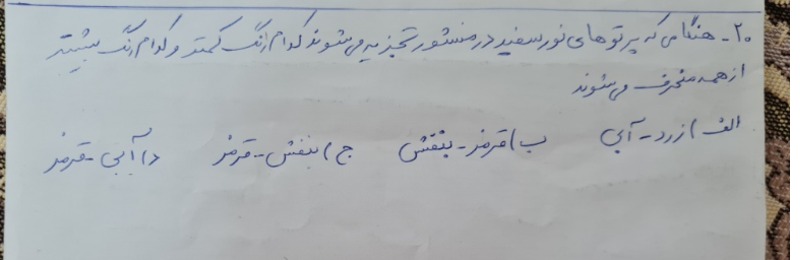 ۲۰- هنگامی که پرتوهای نور سفید در منشور تجزیه می‌شوند کدام رنگ کمتر و کدام رنگ بیشتر
از همه منحرف می‌شوند
الف) زرد - آبی ب) قرمز - بنفش ج) بنفش - قرمز د) آبی - قرمز